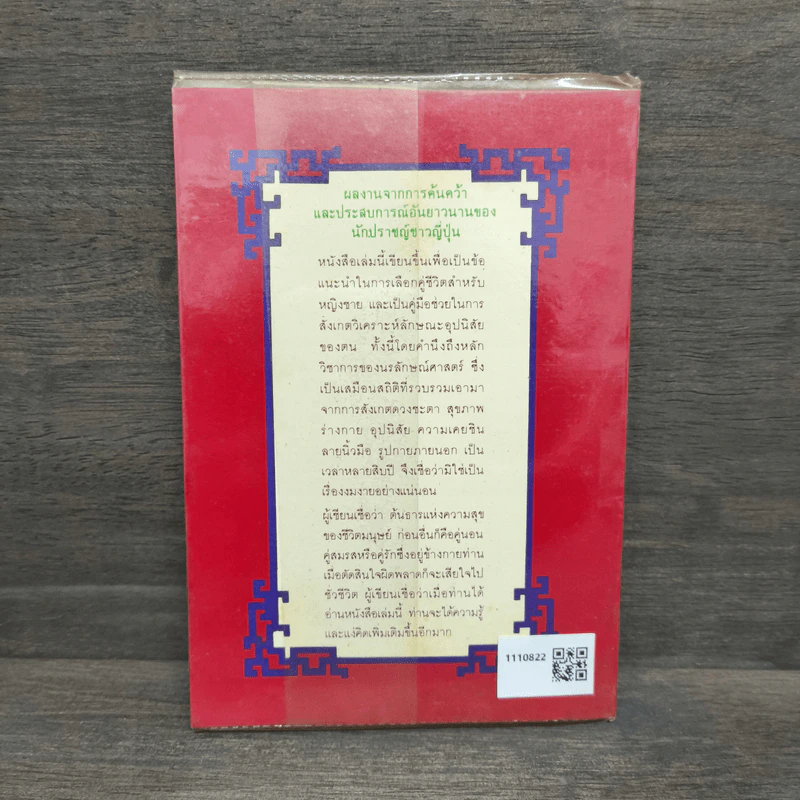 ผลงานจากการค้นคว้า
และประสบการณ์อันยาวนานของ
นักปราชญ์ชาวญี่ปุ่น
หนังสือเล่มนี้เขียนขึ้นเพื่อเป็นข้อ
แนะนำในการเลือกคู่ชีวิตสำหรับ
หญิงชาย และเป็นคู่มือช่วยในการ
สังเกตวิเคราะห์ลักษณะอุปนิสัย
ของตน ทั้งนี้โดยคำนึงถึงหลัก
วิชาการของนรลักษณ์ศาสตร์ ซึ่ง
เป็นเสมือนสถิติที่รวบรวมเอามา
จากการสังเกตดวงชะตา สุขภาพ
ร่างกาย อุปนิสัย ความเคยชิน
ลายนิ้วมือ รูปกายภายนอก เป็น
เวลาหลายสิบปี จึงเชื่อว่ามิใช่เป็น
เรื่องงมงายอย่างแน่นอน
ผู้เขียนเชื่อว่า ต้นธารแห่งความสุข
ของชีวิตมนุษย์ ก่อนอื่นก็คือคู่นอน
คู่สมรสหรือคู่รักซึ่งอยู่ข้างกายท่าน
เมื่อตัดสินใจผิดพลาดก็จะเสียใจไป
ชั่วชีวิต ผู้เขียนเชื่อว่าเมื่อท่านได้
อ่านหนังสือเล่มนี้ ท่านจะได้ความรู้
และแง่คิดเพิ่มเติมขึ้นอีกมาก
1110822